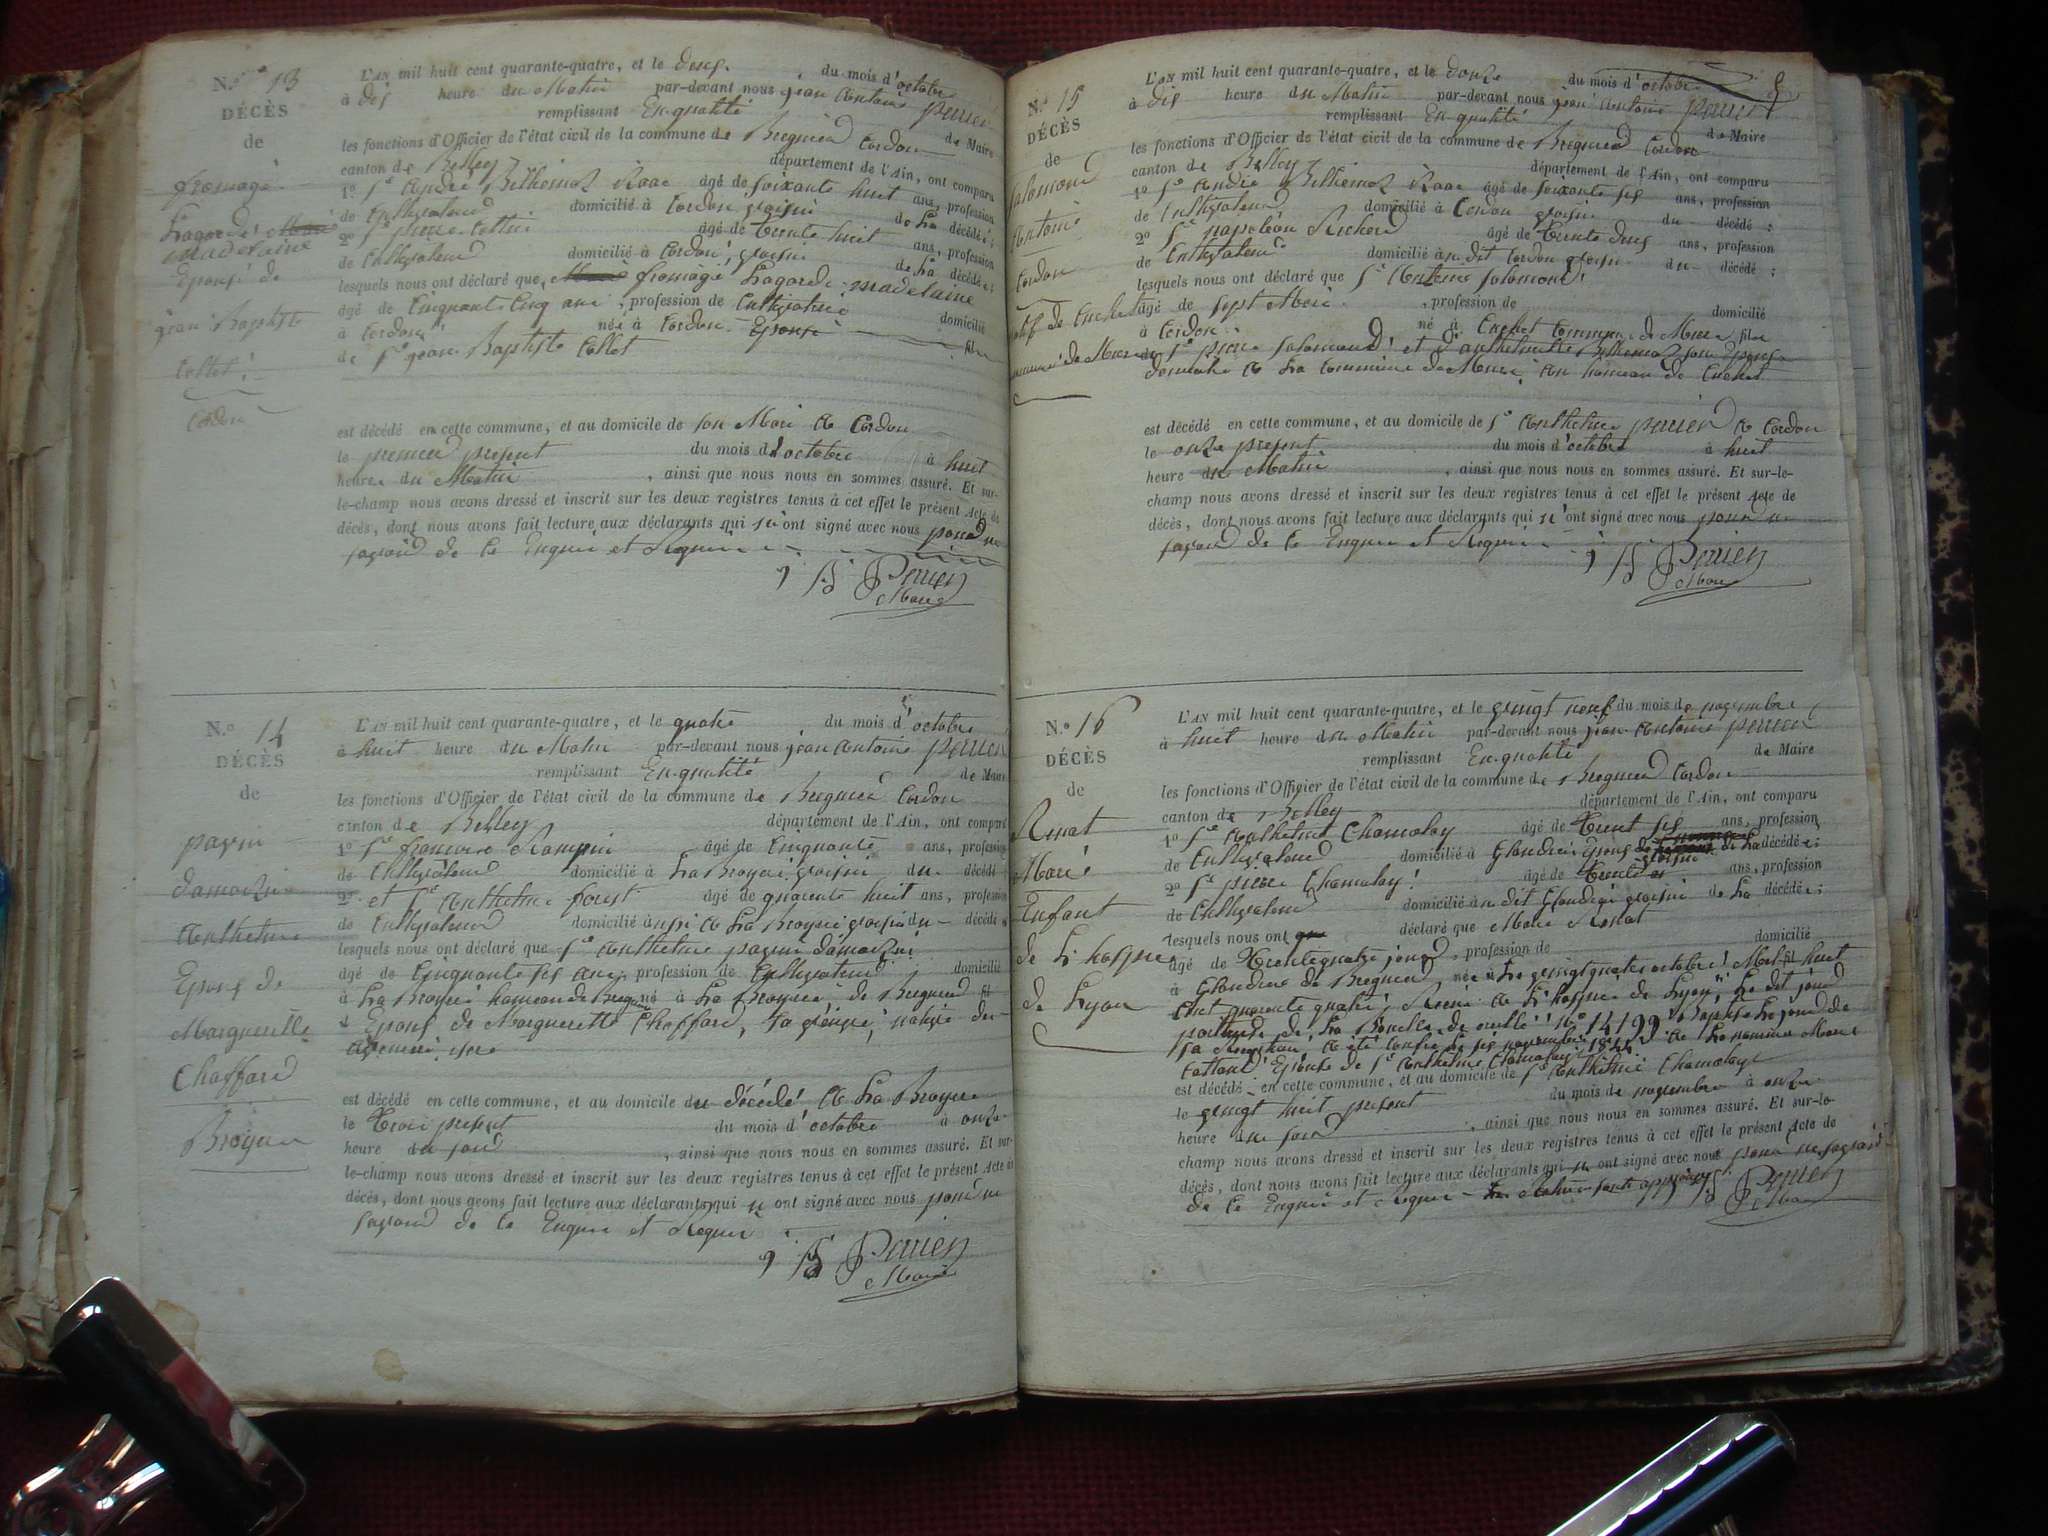 N.º 13
DÉCÈS
de
fromage
Lagarde Marie
madelaine
Epouse de
jean Baptiste
Collet
Cordon
L'AN mil huit cent quarante-quatre, et le deux du mois d'octobre
à dix heure du Matin par-devant nous jean Antoine perrier
remplissant En qualité de Maire
les fonctions d'Officier de l'état civil de la commune de Bregnier Cordon
canton de Belley département de l'Ain, ont comparu
1º Sr André Belhemot âgé de soixante huit ans, profession
de Cultivateur domicilié à Cordon voisin de la décédée;
2º Sr pierre Collin âgé de trente huit ans, profession
de Cultivateur domicilié à Cordon, voisin de la décédée;
lesquels nous ont déclaré que Marie fromage Lagarde madelaine
âgé de Cinquante Cinq ans, profession de Cultivatrice domicilié
à Cordon née à Cordon Epouse fil
de Sr jean Baptiste Collet
est décédé en cette commune, et au domicile de son Mari à Cordon
le premier présent du mois d'octobre à huit
heure du Matin, ainsi que nous nous en sommes assuré. Et sur-
le-champ nous avons dressé et inscrit sur les deux registres tenus à cet effet le présent Acte de
décès, dont nous avons fait lecture aux déclarants qui n'ont signé avec nous pour ne
savoir de ce Enquis et Requis
Perrier
Maire
N.º 14
DÉCÈS
de
pavin
damaizin
Anthelme
Epoux de
Margueritte
Chaffard
Broyer
L'AN mil huit cent quarante-quatre, et le quatre du mois d'octobre
à huit heure du Matin par-devant nous jean Antoine perrier
remplissant En qualité de Maire
les fonctions d'Officier de l'état civil de la commune de Bregnier Cordon
canton de Belley département de l'Ain, ont comparu
1º Sr francois âgé de Cinquante ans, profession
de Cultivateur domicilié à La Broyer voisin du décédé
2º et Sr Anthelme forest âgé de quarante huit ans, profession
de Cultivateur domicilié à La Broyer voisin du décédé
lesquels nous ont déclaré que Sr Anthelme pavin damaizin
âgé de Cinquante six ans, profession de Cultivateur domicilié
à La Broyer hameau de Breg né à La Broyer, de Bregnier fil
Epoux de Marguerette Chaffard, sa
est décédé en cette commune, et au domicile du décédé à La Broyer
le trois présent du mois d'octobre à onze
heure du soir, ainsi que nous nous en sommes assuré. Et sur-
le-champ nous avons dressé et inscrit sur les deux registres tenus à cet effet le présent Acte de
décès, dont nous avons fait lecture aux déclarants qui n'ont signé avec nous pour ne
savoir de ce Enquis et Requis
Perrier
Maire
N.º 15
DÉCÈS
de
Salomond
Antoine
Cordon
natif de Cuchet
commune de Murs
L'AN mil huit cent quarante-quatre, et le douze du mois d'octobre
à dix heure du Matin par-devant nous jean Antoine perrier
remplissant En qualité de Maire
les fonctions d'Officier de l'état civil de la commune de Bregnier Cordon
canton de Belley département de l'Ain, ont comparu
1º Sr André Belhemot âgé de soixante six ans, profession
de Cultivateur domicilié à Cordon voisin du décédé;
2º Sr napoléon Richerd âgé de trente deux ans, profession
de Cultivateur domicilié au dit Cordon voisin du décédé;
lesquels nous ont déclaré que Sr Antoine Salomond
âgé de sept Mois, profession de domicilié
à Cordon né à Cuchet Commune de Murs fils
de Sr pierre Salomond et d'anthelmette Belhemot son Epouse
domicilié à La Commune de Murs au hameau de Cuchet
est décédé en cette commune, et au domicile de Sr Anthelme perrier à Cordon
le onze présent du mois d'octobre à huit
heure du Matin, ainsi que nous nous en sommes assuré. Et sur-le-
champ nous avons dressé et inscrit sur les deux registres tenus à cet effet le présent Acte de
décès, dont nous avons fait lecture aux déclarants qui n'ont signé avec nous pour ne
savoir de ce Enquis et Requis
Perrier
Maire
N.º 16
DÉCÈS
de
Renat
Marie
Enfant
de L'hospice
de Lyon
L'AN mil huit cent quarante-quatre, et le vingt neuf du mois de novembre
à huit heure du Matin par-devant nous jean Antoine perrier
remplissant En qualité de Maire
les fonctions d'Officier de l'état civil de la commune de Bregnier Cordon
canton de Belley département de l'Ain, ont comparu
1º Sr Anthelme Chamalay âgé de trente six ans, profession
de Cultivateur domicilié à Glandieu Epoux de de la décédée;
voisin
2º Sr pierre Chamalay âgé de trente ans, profession
de Cultivateur domicilié au dit Glandieu voisin de la décédée;
lesquels nous ont déclaré que Marie Renat
âgé de trente quatre jours, profession de domicilié
à Glandieu de Bregnier née à Le vingt quatre octobre Mil huit
Cent quarante quatre, à L'hospice de Lyon, Le dit jour
de La Boucle No 14199 Baptisé Le jour de
sa à été Le six novembre 1844 à La nommée Marie
Epouse de Sr Anthelme Chamalay
est décédé en cette commune, et au domicile de Sr Anthelme Chamalay
le vingt huit présent du mois de novembre à onze
heure du soir, ainsi que nous nous en sommes assuré. Et sur-le-
champ nous avons dressé et inscrit sur les deux registres tenus à cet effet le présent Acte de
décès, dont nous avons fait lecture aux déclarants qui n'ont signé avec nous pour ne savoir
de ce Enquis et Requis
Perrier
Maire